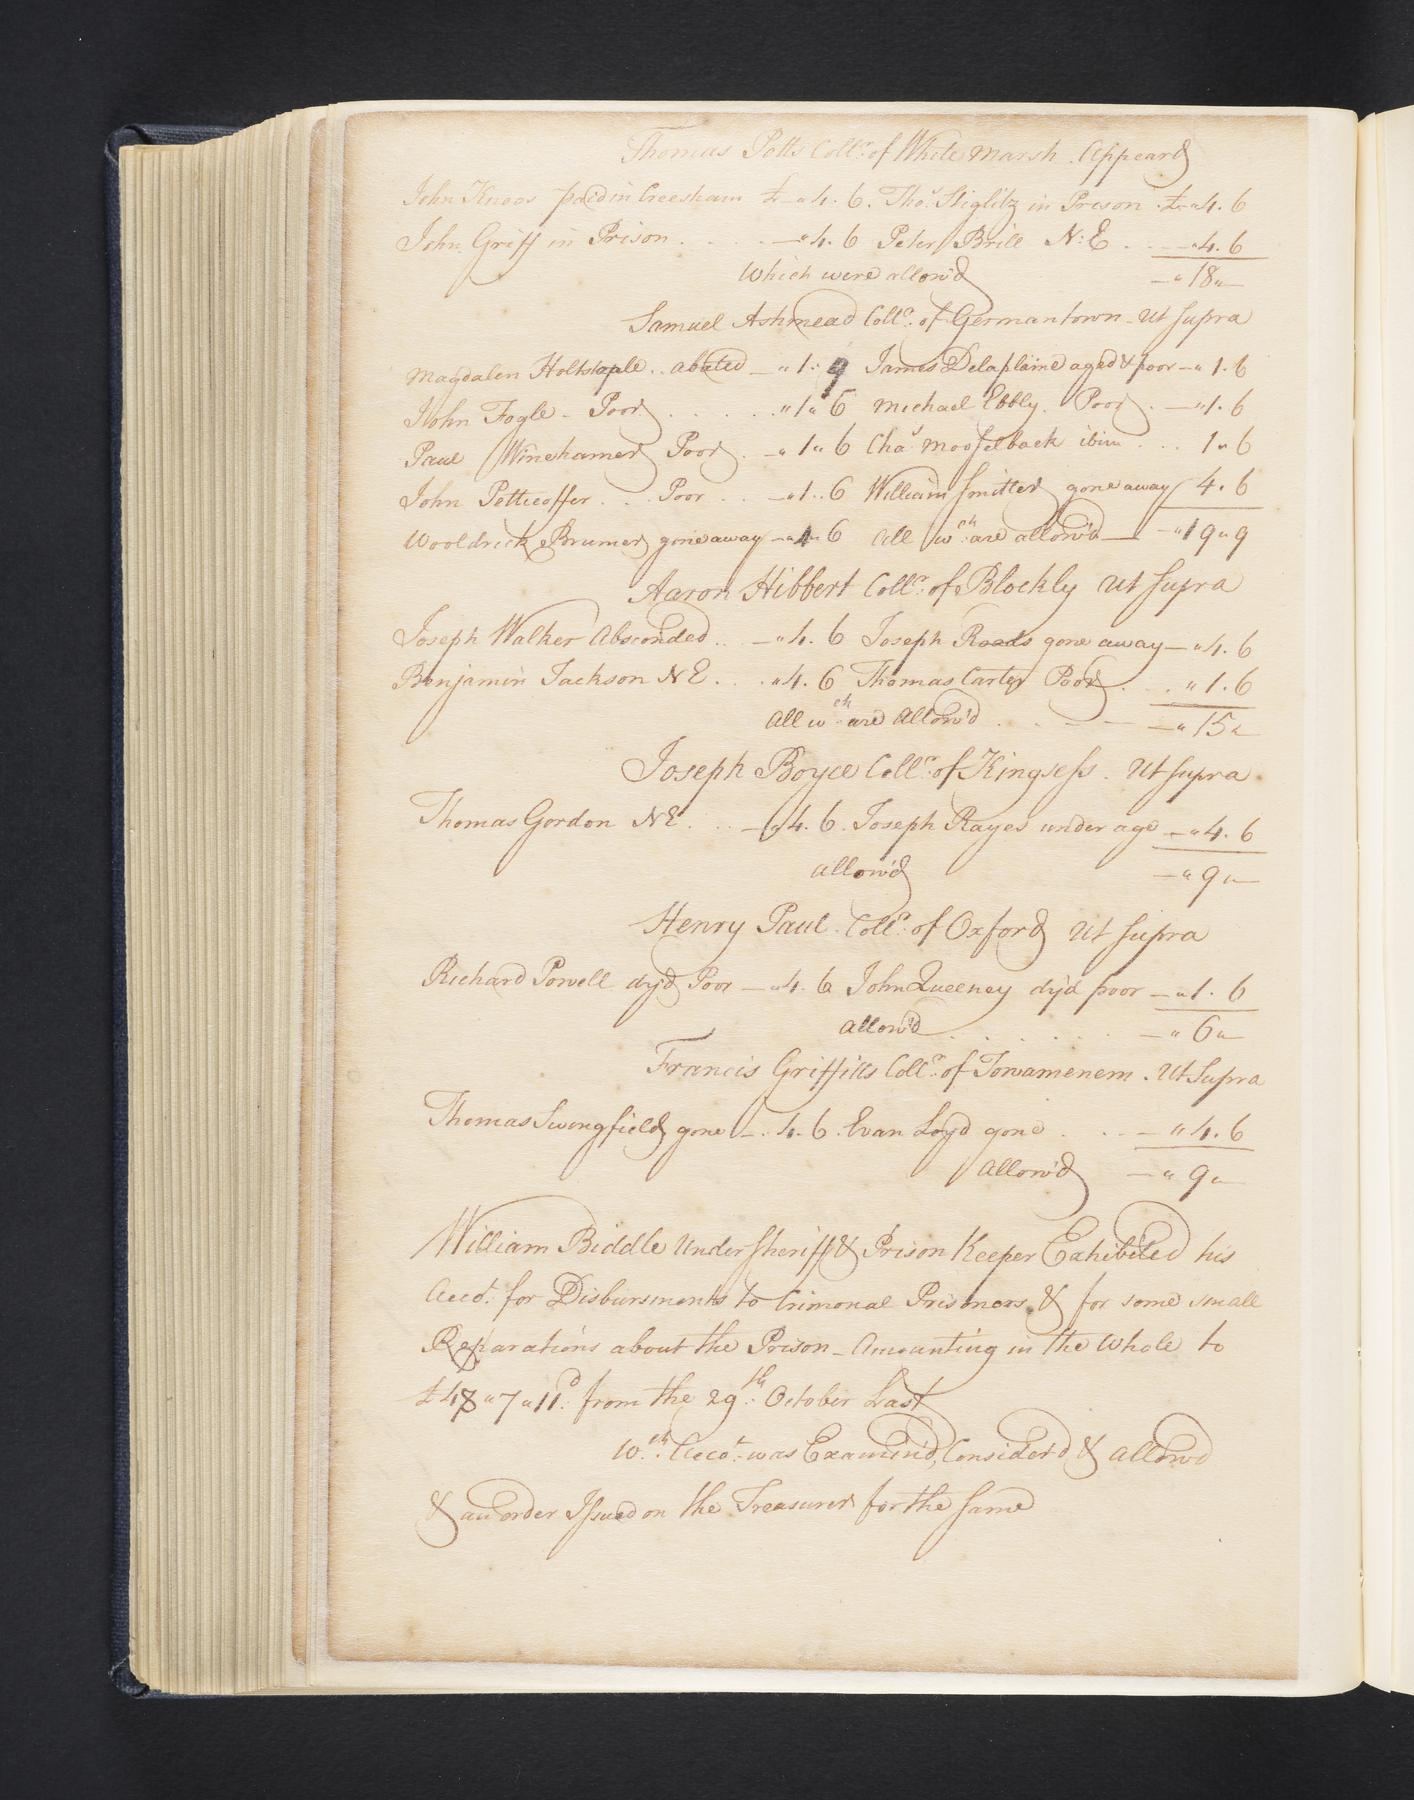 Thomas Potts Collr. of White Marsh. Appeard
John Knoos paid in Creesham £ – " 4. 6. Thos. Stiglitz in Prison . £ – " 4. 6
John Griff in Prison . . . . . — " 4. 6 Peter Brill N: E . . . — " 4. 6
Which were allow'd — " 18 " —
Samuel Ashmead Collr. of Germantown – Ut Supra
Magdalen Holtstaple . . abated — " 1 : 9 James Delaplaine aged & poor — " 1. 6
John Fogle – Poor . . . . . " 1 " 6 Michael Ebbly . Poor . — " 1. 6
Paul Winehamer Poor . — " 1 " 6 Chas. Mooselback ibim . . . 1 " 6
John Potticoffer . . . Poor . . — " 1 . . 6 William Smitter gone away 4. 6
Wooldrick Brumer gone away — " 1 " 6 All wch. are allow'd — — " 19 " 9
Aaron Hibbert Collr. of Blockly Ut Supra
Joseph Walker Absconded . . — " 4. 6 Joseph Roads gone away — " 4. 6
Benjamin Jackson N E . . . " 4. 6 Thomas Carter Poor . . . " 1. 6
All wch. are Allow'd . . — — — " 15 "
Joseph Boyce Collr. of Kingsess . Ut Supra
Thomas Gordon N E . . . — " 4. 6 . Joseph Rayes under age — " 4. 6
allow'd — " 9 " —
Henry Paul . Collr. of Oxford Ut Supra
Richard Powell dy'd Poor — " 4. 6 John Queeney dy'd poor — " 1. 6
allow'd . . . . . — " 6 " —
Francis Griffitts Collr. of Towamenem . Ut Supra
Thomas Swongfield gone — . 4. 6 . Evan Loyd gone . . . — " 4. 6
Allow'd — " 9 " —
William Biddle Under Sheriff & Prison Keeper Exhibited his
Accot. for Disbursments to Crimonal Prisoners & for some small
Reparations about the Prison – Amounting in the Whole to
£ 48 " 7 " 11d. from the 29th. October Last
Wch. Accot. was Examin'd, Consider'd & allow'd
& an order Issued on the Treasurer for the same